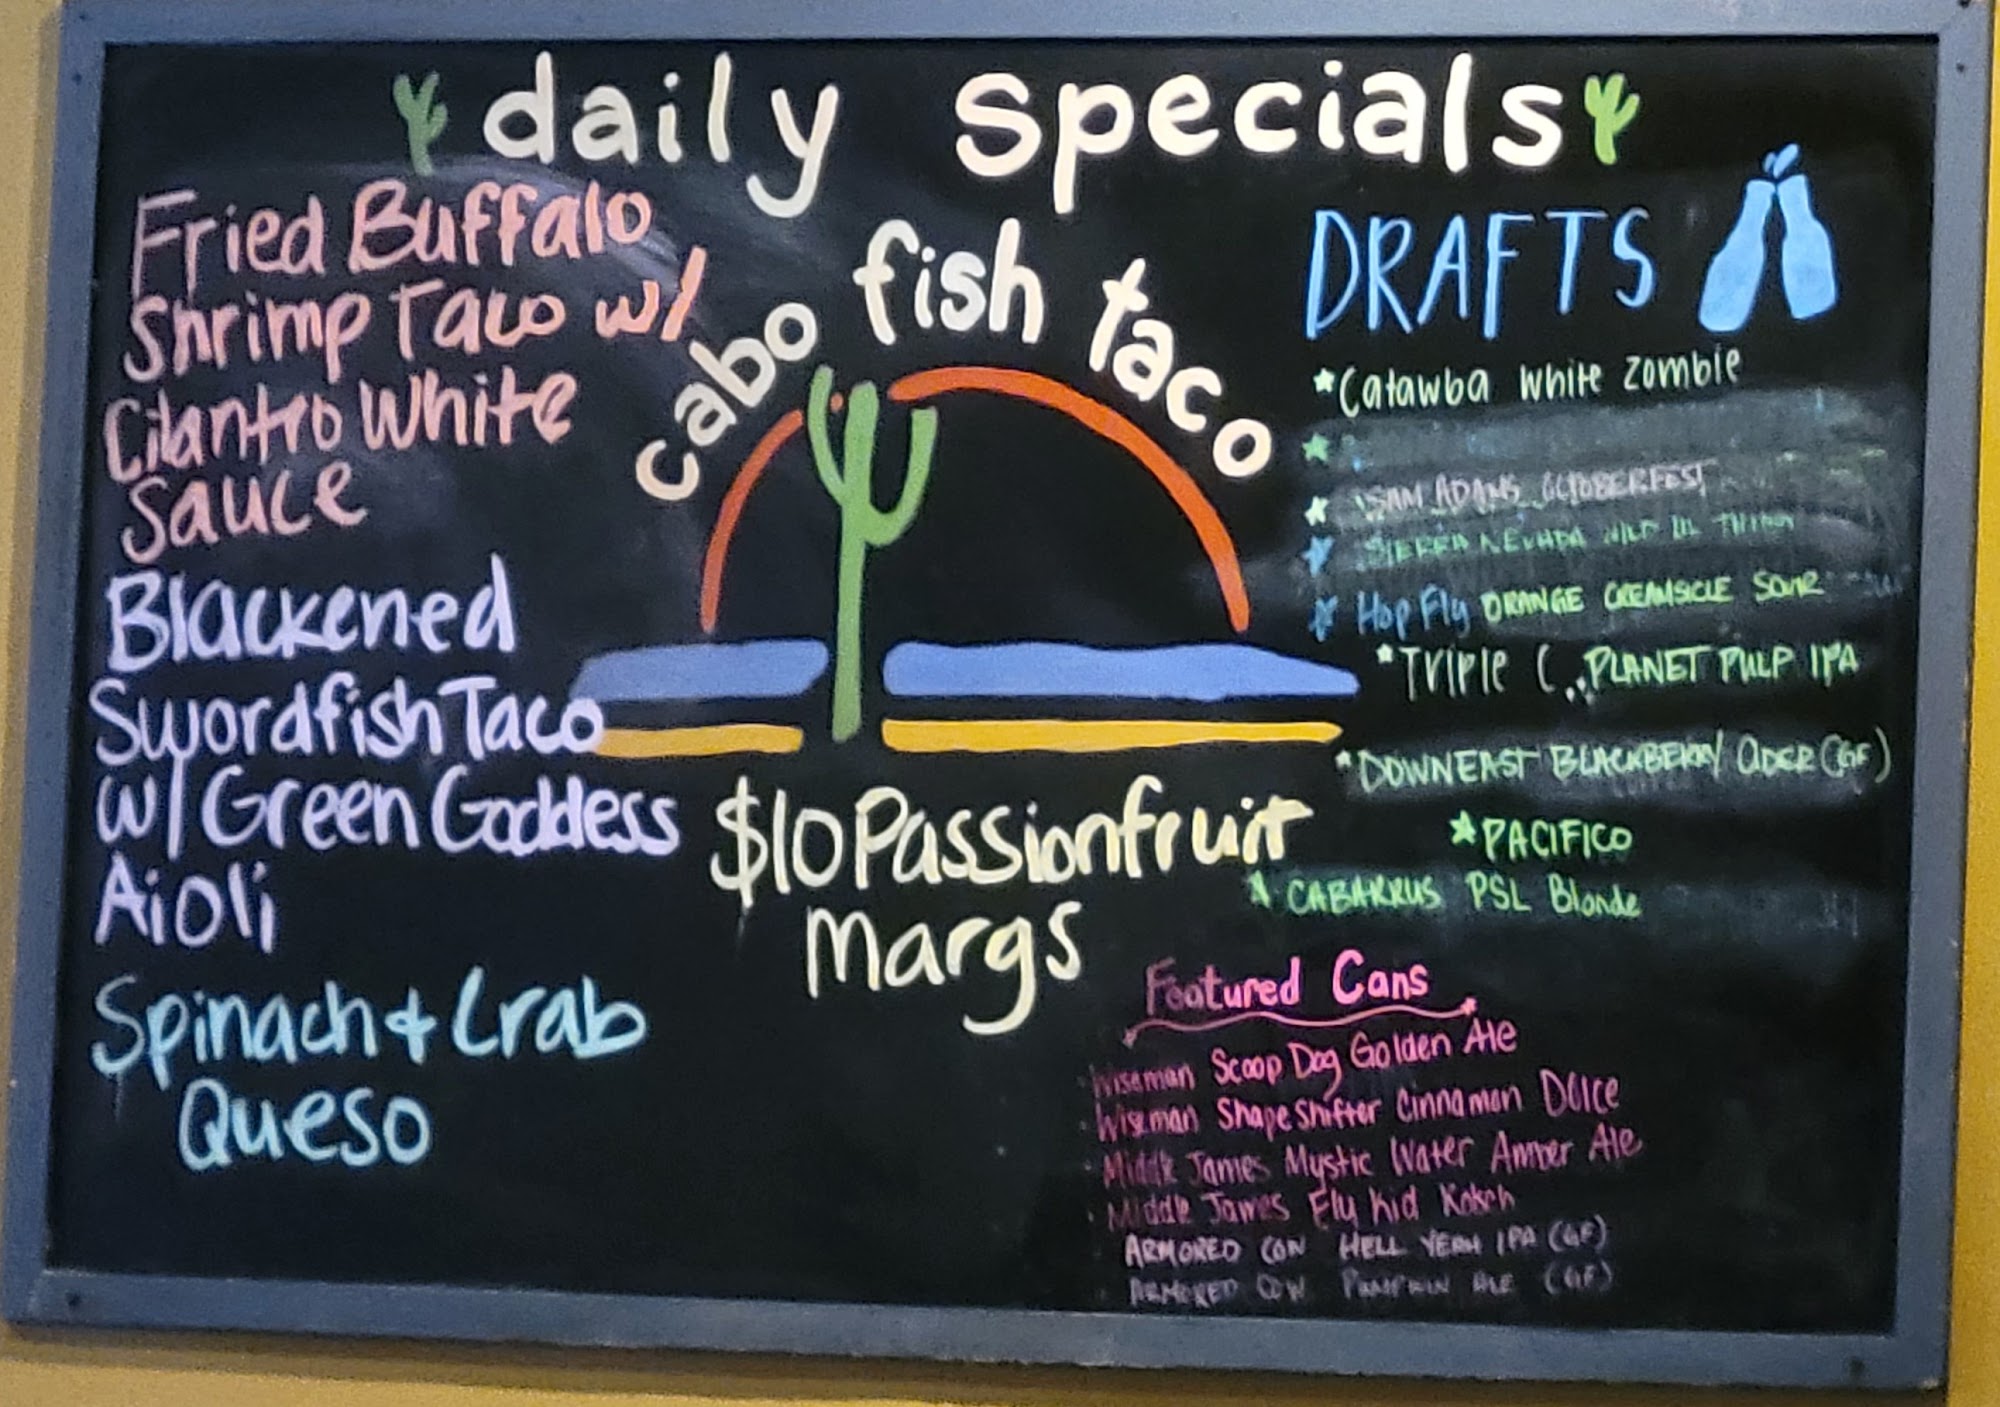 daily specials
cabo fish taco
Fried Buffalo
Shrimp Taco w/
Cilantro White
Sauce
Blackened
Swordfish Taco
w/ Green Goddess
Aioli
Spinach + Crab
Queso
$10 Passionfruit
Margs
DRAFTS
Catawba White Zombie
SAM ADAMS OCTOBERFEST
SIERRA NEVADA WILD LIL THING
Hop Fly ORANGE CREAMSICLE SOUR
Triple C... PLANET PULP IPA
DOWNEAST BLACKBERRY CIDER (GF)
PACIFICO
CABARRUS PSL Blonde
Featured Cans
Wiseman Scoop Dog Golden Ale
Wiseman Shape Shifter Cinnamon Dolce
Middle James Mystic Water Amber Ale
Middle James Fly Kid Kolsch
ARMORED COW HELL YEAH IPA (GF)
ARMORED COW PUMPKIN ALE (GF)